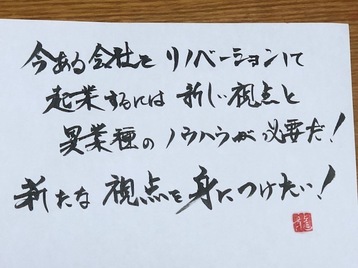 今ある会社をリノベーションして
起業するには新しい視点と
異業種のノウハウが必要だ!
新たな視点を身につけたい!